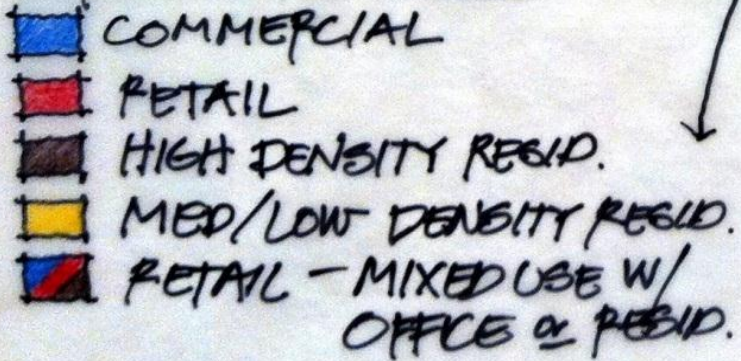 COMMERCIAL
RETAIL
HIGH DENSITY RESID.
MED/LOW DENSITY RESID.
RETAIL - MIXED USE W/
OFFICE or RESID.